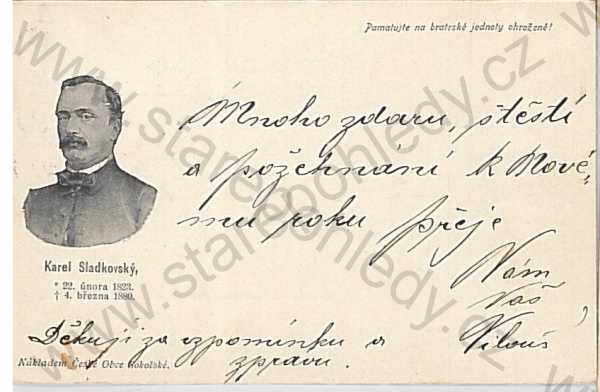 Pamatujte na bratrské jednoty ohrožené!
Mnoho zdaru, štěstí
a požehnání k Nové-
mu roku přeje
Vám
Váš
Karel Sladkovský,
* 22. února 1823.
† 4. března 1880.
Děkuji za vzpomínku a
zprávu.
Nákladem České Obce Sokolské.
www.starepohledy.cz